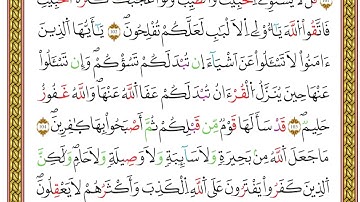 قُل لَّا يَسْتَوِى ٱلْخَبِيثُ وَٱلطَّيِّبُ وَلَوْ أَعْجَبَكَ كَثْرَةُ ٱلْخَبِيثِ
فَٱتَّقُوا۟ ٱللَّهَ يَـٰٓأُو۟لِى ٱلْأَلْبَـٰبِ لَعَلَّكُمْ تُفْلِحُونَ ١٠٢ يَـٰٓأَيُّهَا ٱلَّذِينَ
ءَامَنُوا۟ لَا تَسْـَٔلُوا۟ عَنْ أَشْيَآءَ ان تُبْدَ لَكُمْ تَسُؤْكُمْ وَإِن تَسْـَٔلُوا۟
عَنْهَا حِينَ يُنَزَّلُ ٱلْقُرْءَانُ تُبْدَ لَكُمْ عَفَا ٱللَّهُ عَنْهَا وَٱللَّهُ غَفُورٌ
حَلِيمٌ ١٠٣ قَدْ سَأَلَهَا قَوْمٌ مِّن قَبْلِكُمْ ثُمَّ أَصْبَحُوا۟ بِهَا كَـٰفِرِينَ ١٠٤
مَا جَعَلَ ٱللَّهُ مِنۢ بَحِيرَةٍ وَلَا سَآئِبَةٍ وَلَا وَصِيلَةٍ وَلَا حَامٍ وَلَـٰكِنَّ
ٱلَّذِينَ كَفَرُوا۟ يَفْتَرُونَ عَلَى ٱللَّهِ ٱلْكَذِبَ وَأَكْثَرُهُمْ لَا يَعْقِلُونَ